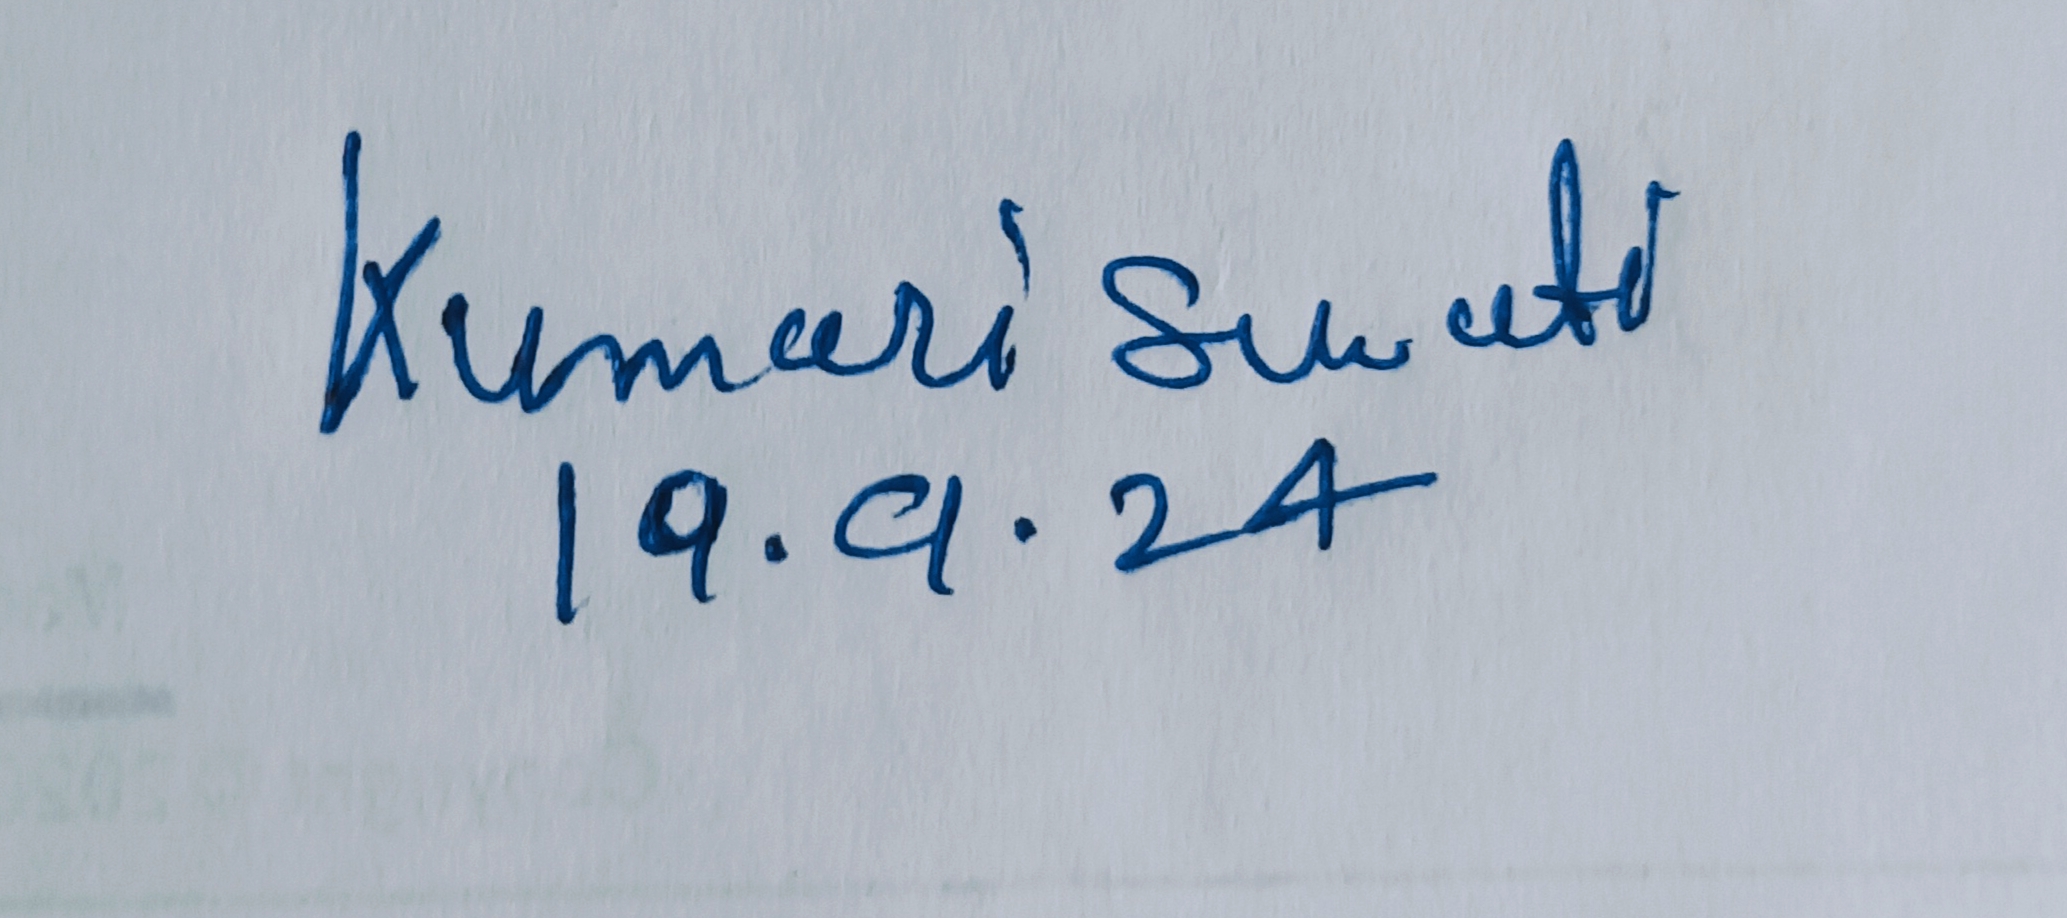 Kumari Swati
19.9.24